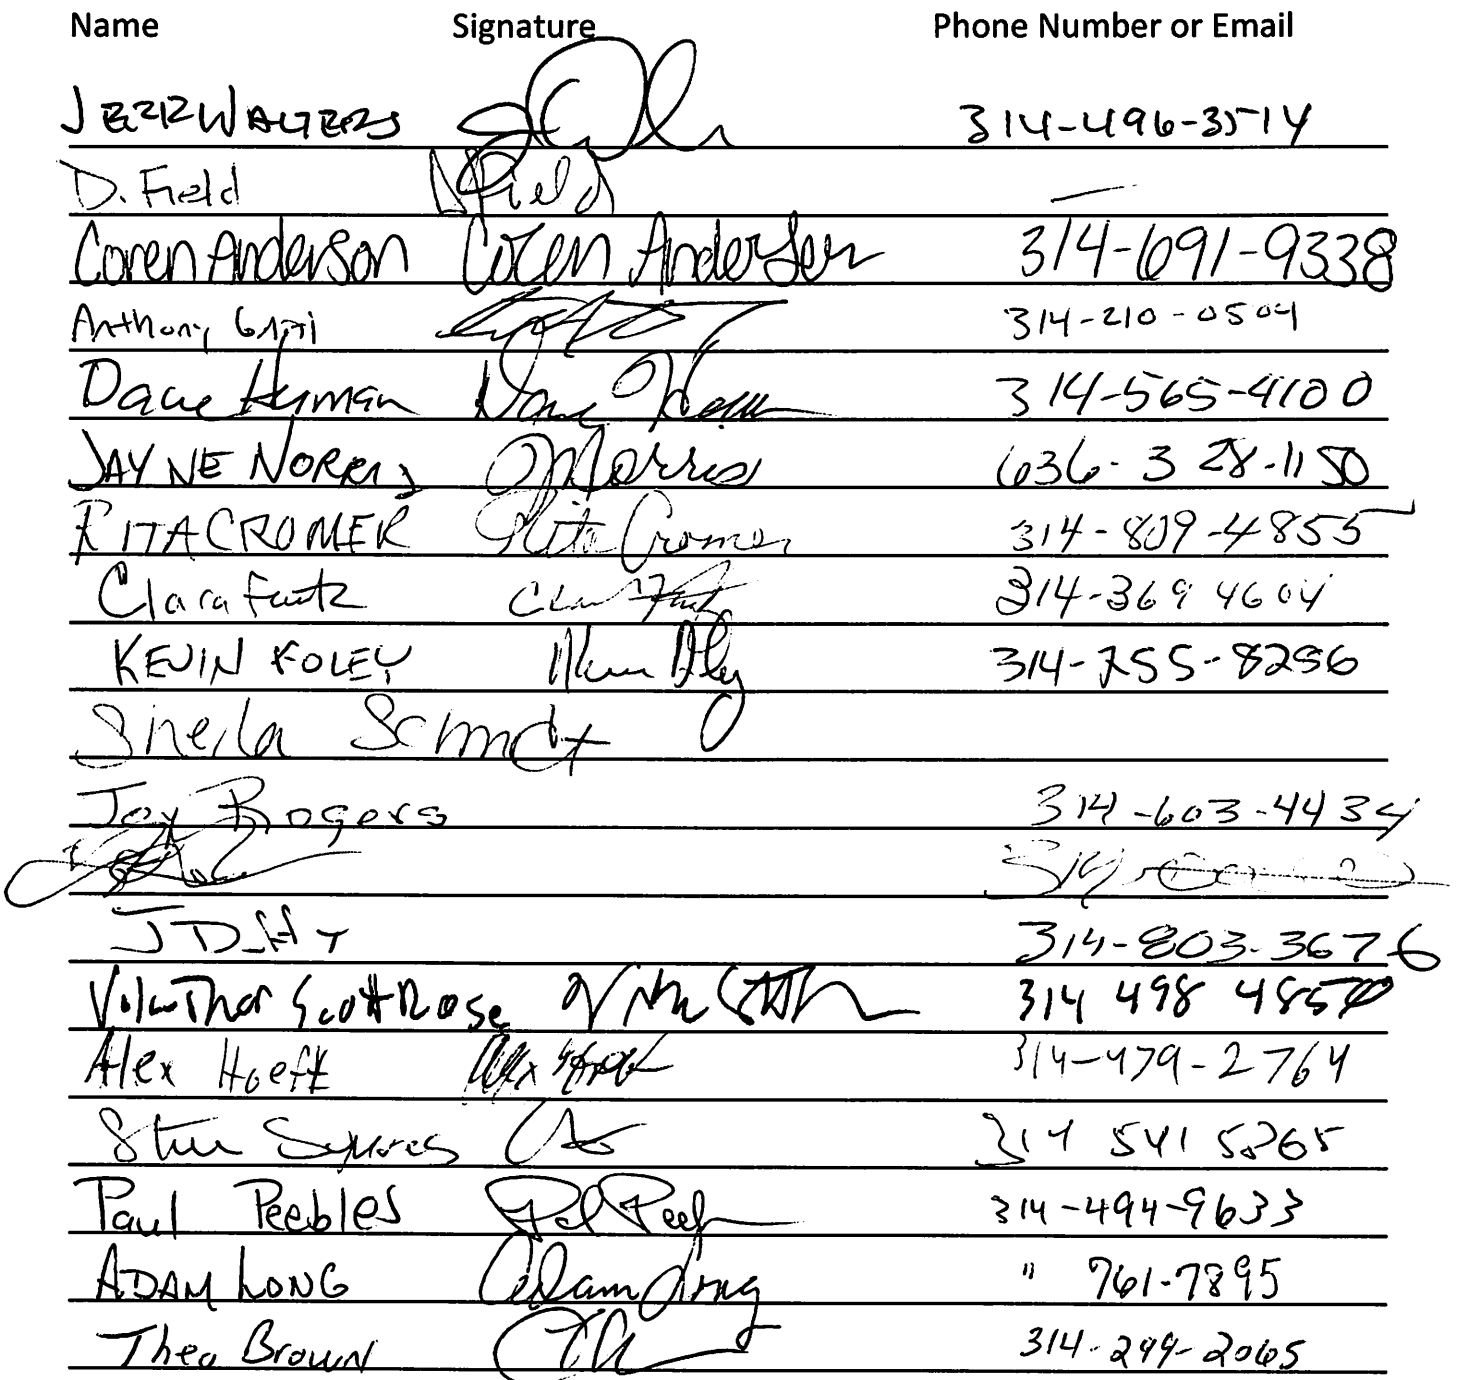 Name Signature Phone Number or Email
314-496-3514
D. Field DField —
Coren Anderson Coren Anderson 314-691-9338
Anthony 314-210-0504
Dave Hyman 314-565-4100
JAYNE NORRIS JNorris 636-328-1150
RITA CROMER Rita Cromer 314-809-4855
Clara 314-369 4604
KEVIN FOLEY 314-255-8256
Sheila Schmdt
Joy Rogers 314-603-4434
314-803-3676
Scott Rose 314 498
Alex Hoeft Alex Hoeft 314-479-2764
314 541 5265
Paul Peebles 314-494-9633
ADAM LONG Adam Long " 761-7895
Theo Brown 314-299-2065